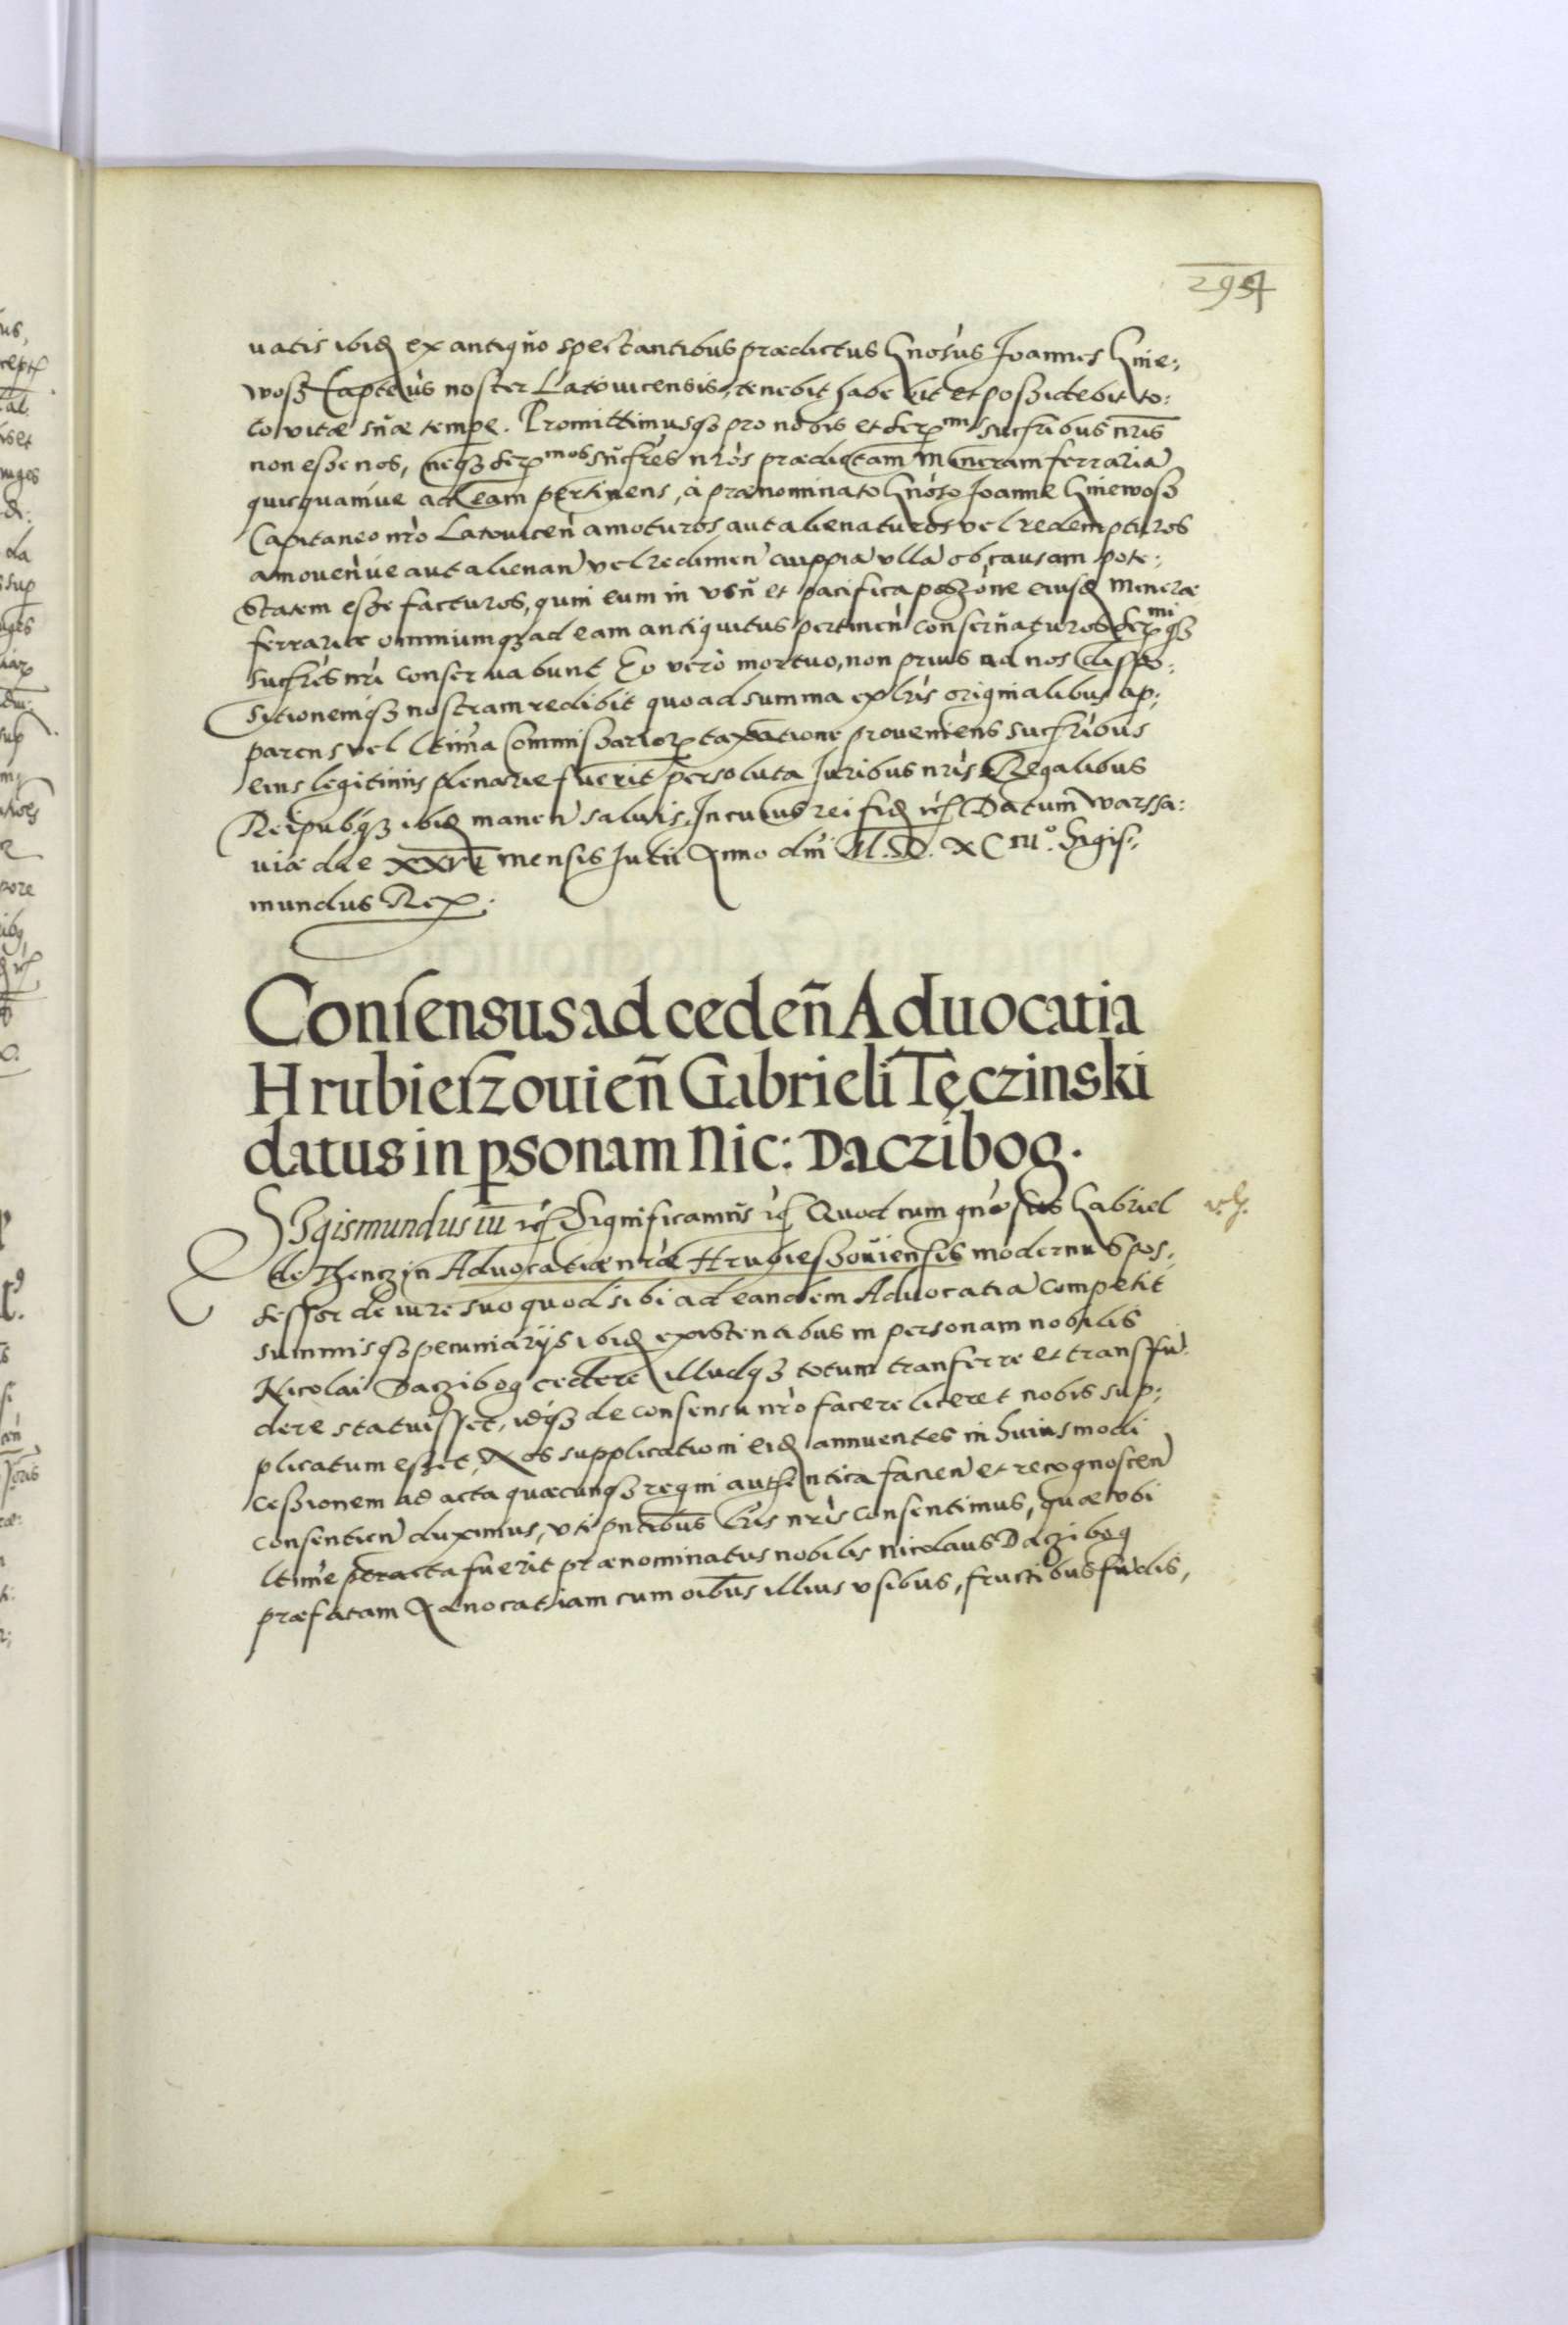 294
uatis ibid ex antiquo spectantibus prædictus Gnosus Joannes Gnie:
wosz Capteus noster Latouicensis, tenebit habebit et poszidebit to:
to vitæ suæ tempe. Promittimusqz pro nobis et Ser^mis sucſribus nris
non esze nos, neqz Ser^mos sucſres nros prædictam Mineram ferraria
quicquamue ad eam pertinens, à prænominato Gnoso Joanne Gniewosz
Capitaneo nro Latouicen amoturos aut alienaturos vel redempturos
amouenue aut alienan vel redimen cuippia vlla ob causam pote:
statem esze facturos, quin eum in vsu et pacifica poszone eiusd Mineræ
ferrariæ omniumqz ad eam antiquitus pertinen conseruaturos Ser^mi qz
sucſres nri conseruabunt Eo vero mortuo, non prius ad nos dispo:
sitionemqz nostram redibit quoad summa ex lris originalibus ap:
parens vel ltima Commiszarior taxatione proueniens sucſribus
eius legitimis plenarie fuerit persoluta Juribus nris Regalibus
Reipubqz ibid manen saluis. In cuius rei fid etc Datum Warssa:
uiæ die XXVI mensis Julii Anno dni M.D.XCIII°. Sigis:
mundus Rex.
Consensus ad ceden Aduocatia
Hrubieszouien Gabrieli Tęczinski
datus in psonam Nic: Daczibog.
SIgismundus iii etc Significamus etc Quod cum gnosus Gabriel
de Thenczin Aduocatiæ nræ Hrubieszouiensis modernus pos:
sessor de iure suo quod sibi ad eandem Aduocatia competit
summisqz pecuniarijs ibid existentibus in personam nobilis
Nicolai Daczibog cedere illudqz totum tranferre et transfu:
dere statuisset, idqz de consensu nro facere liceret nobis sup:
plicatum eszet, Nos supplicationi eid annuentes in huiusmodi
ceszionem ad acta quæcunqz regni authentica facien et recognoscen
consentien duximus, vti pntibus lris nris consentimus, quæ vbi
ltime peracta fuerit prænominatus nobilis Nicolaus Daczibog
præfatam Aduocatiam cum oibus illius vsibus, fructibus fundis,